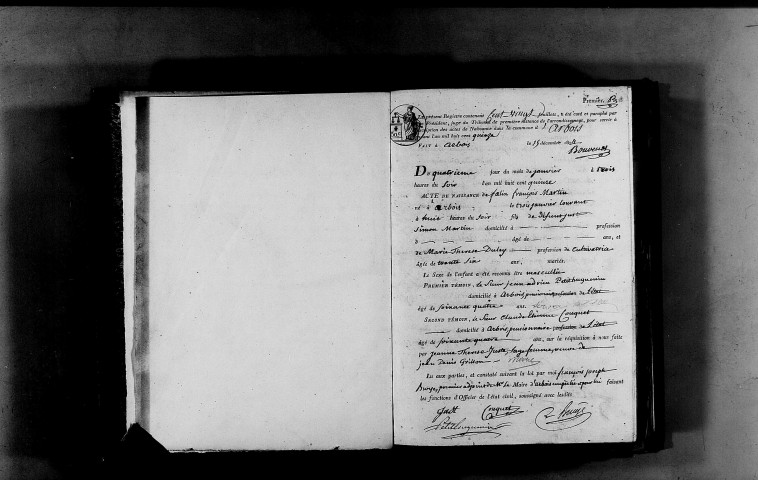 Premier
Le présent Registre contenant Cent vingt feuillets, a été coté et paraphé par
Président, juge du Tribunal de première instance de l'arrondissement, pour servir à
l'inscription des actes de Naissance dans la commune d'Arbois
l'an mil huit cent quinze
FAIT à Arbois le 15 décembre
Bouvenot
DU quatrieme jour du mois de janvier à trois
heures du soir l'an mil huit cent quinze
ACTE DE NAISSANCE de felix françois Martin
né à arbois le trois janvier courant
à huit heures du soir fils de défunt
Simon Martin domicilié à profession
d âgé de ans, et
de Marie Therese Duley profession de Cultivatrice
âgée de trente six ans, mariés.
Le Sexe de l'enfant a été reconnu être masculin
PREMIER TÉMOIN, le Sieur jean
domicilié à Arbois pensionnaire profession de l'état
âgé de soixante quatre ans.
SECOND TÉMOIN, le Sieur Claude Etienne Couquet
domicilié à Arbois pensionnaire profession de l'état
âgé de soixante quatre ans, sur la réquisition à nous faite
par jeanne Therese Gustt, sage femme, veuve de
jean Denis
Lu aux parties, et constaté suivant la loi par moi françois joseph
premier adjoint de Mr le Maire d'arbois faisant
les fonctions d'Officier de l'état civil, soussigné avec lesdits
Couquet